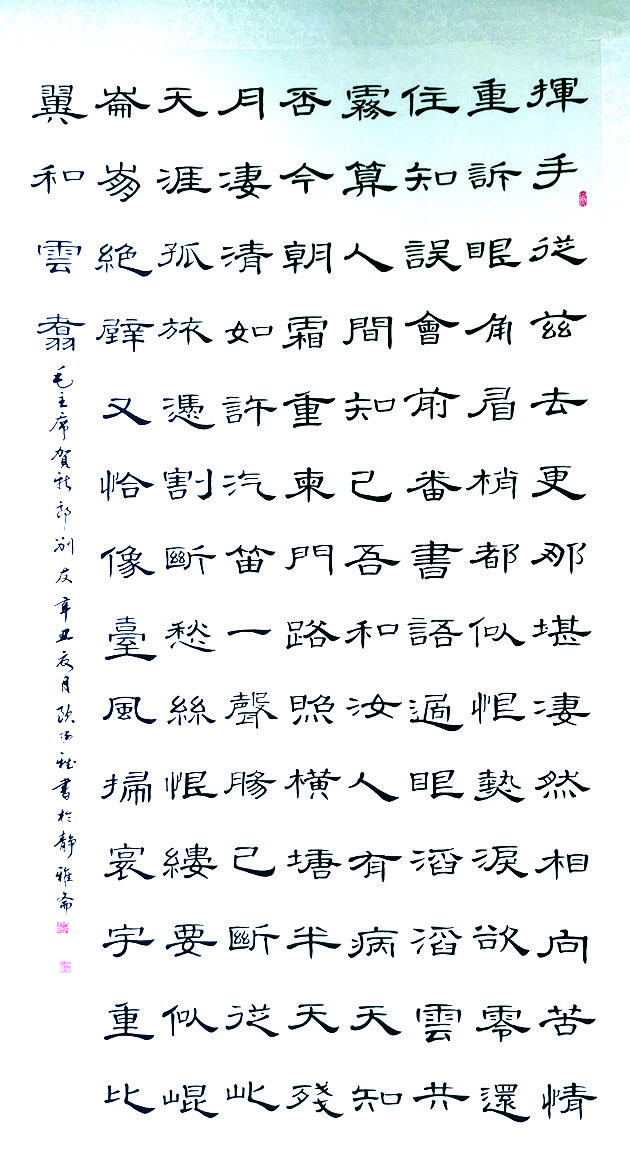 揮手從茲去更那堪凄然相向苦情
重訴眼角眉梢都似恨熱淚欲零還
住知誤會前番書語過眼滔滔雲共
霧算人間知己吾和汝人有病天知
否今朝霜重東門路照橫塘半天殘
月凄清如許汽笛一聲腸已斷從此
天涯孤旅憑割斷愁絲恨縷要似崐
崙崩絕壁又恰像臺風掃寰宇重比
翼和雲翥
毛主席賀新郎別友辛丑夏月書於靜雅齋